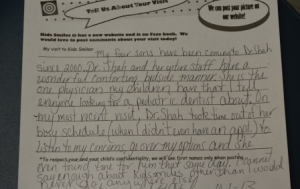 Tell Us About Your Visit
We can post your picture on
our website!
Kids Smiles has a new website and is on Face book. We
would love to post comments about your visit today!
My visit to Kids Smiles
My four sons have been coming to Dr. Shah
since 2010. Dr. Shah and her entire staff have a
wonderful comforting bedside manner. She is the
one physician my children have that I tell
everyone looking for a pediatric dentist about. On
my most recent visit, Dr. Shah took time out of her
busy schedule (when I didn't even have an app) to
listen to my concerns, go over my options and she
*To respect your and your child's confidentiality, we will use first names only when posting
even found time for them that same day. I cannot
say enough about Kidssmiles other than I would